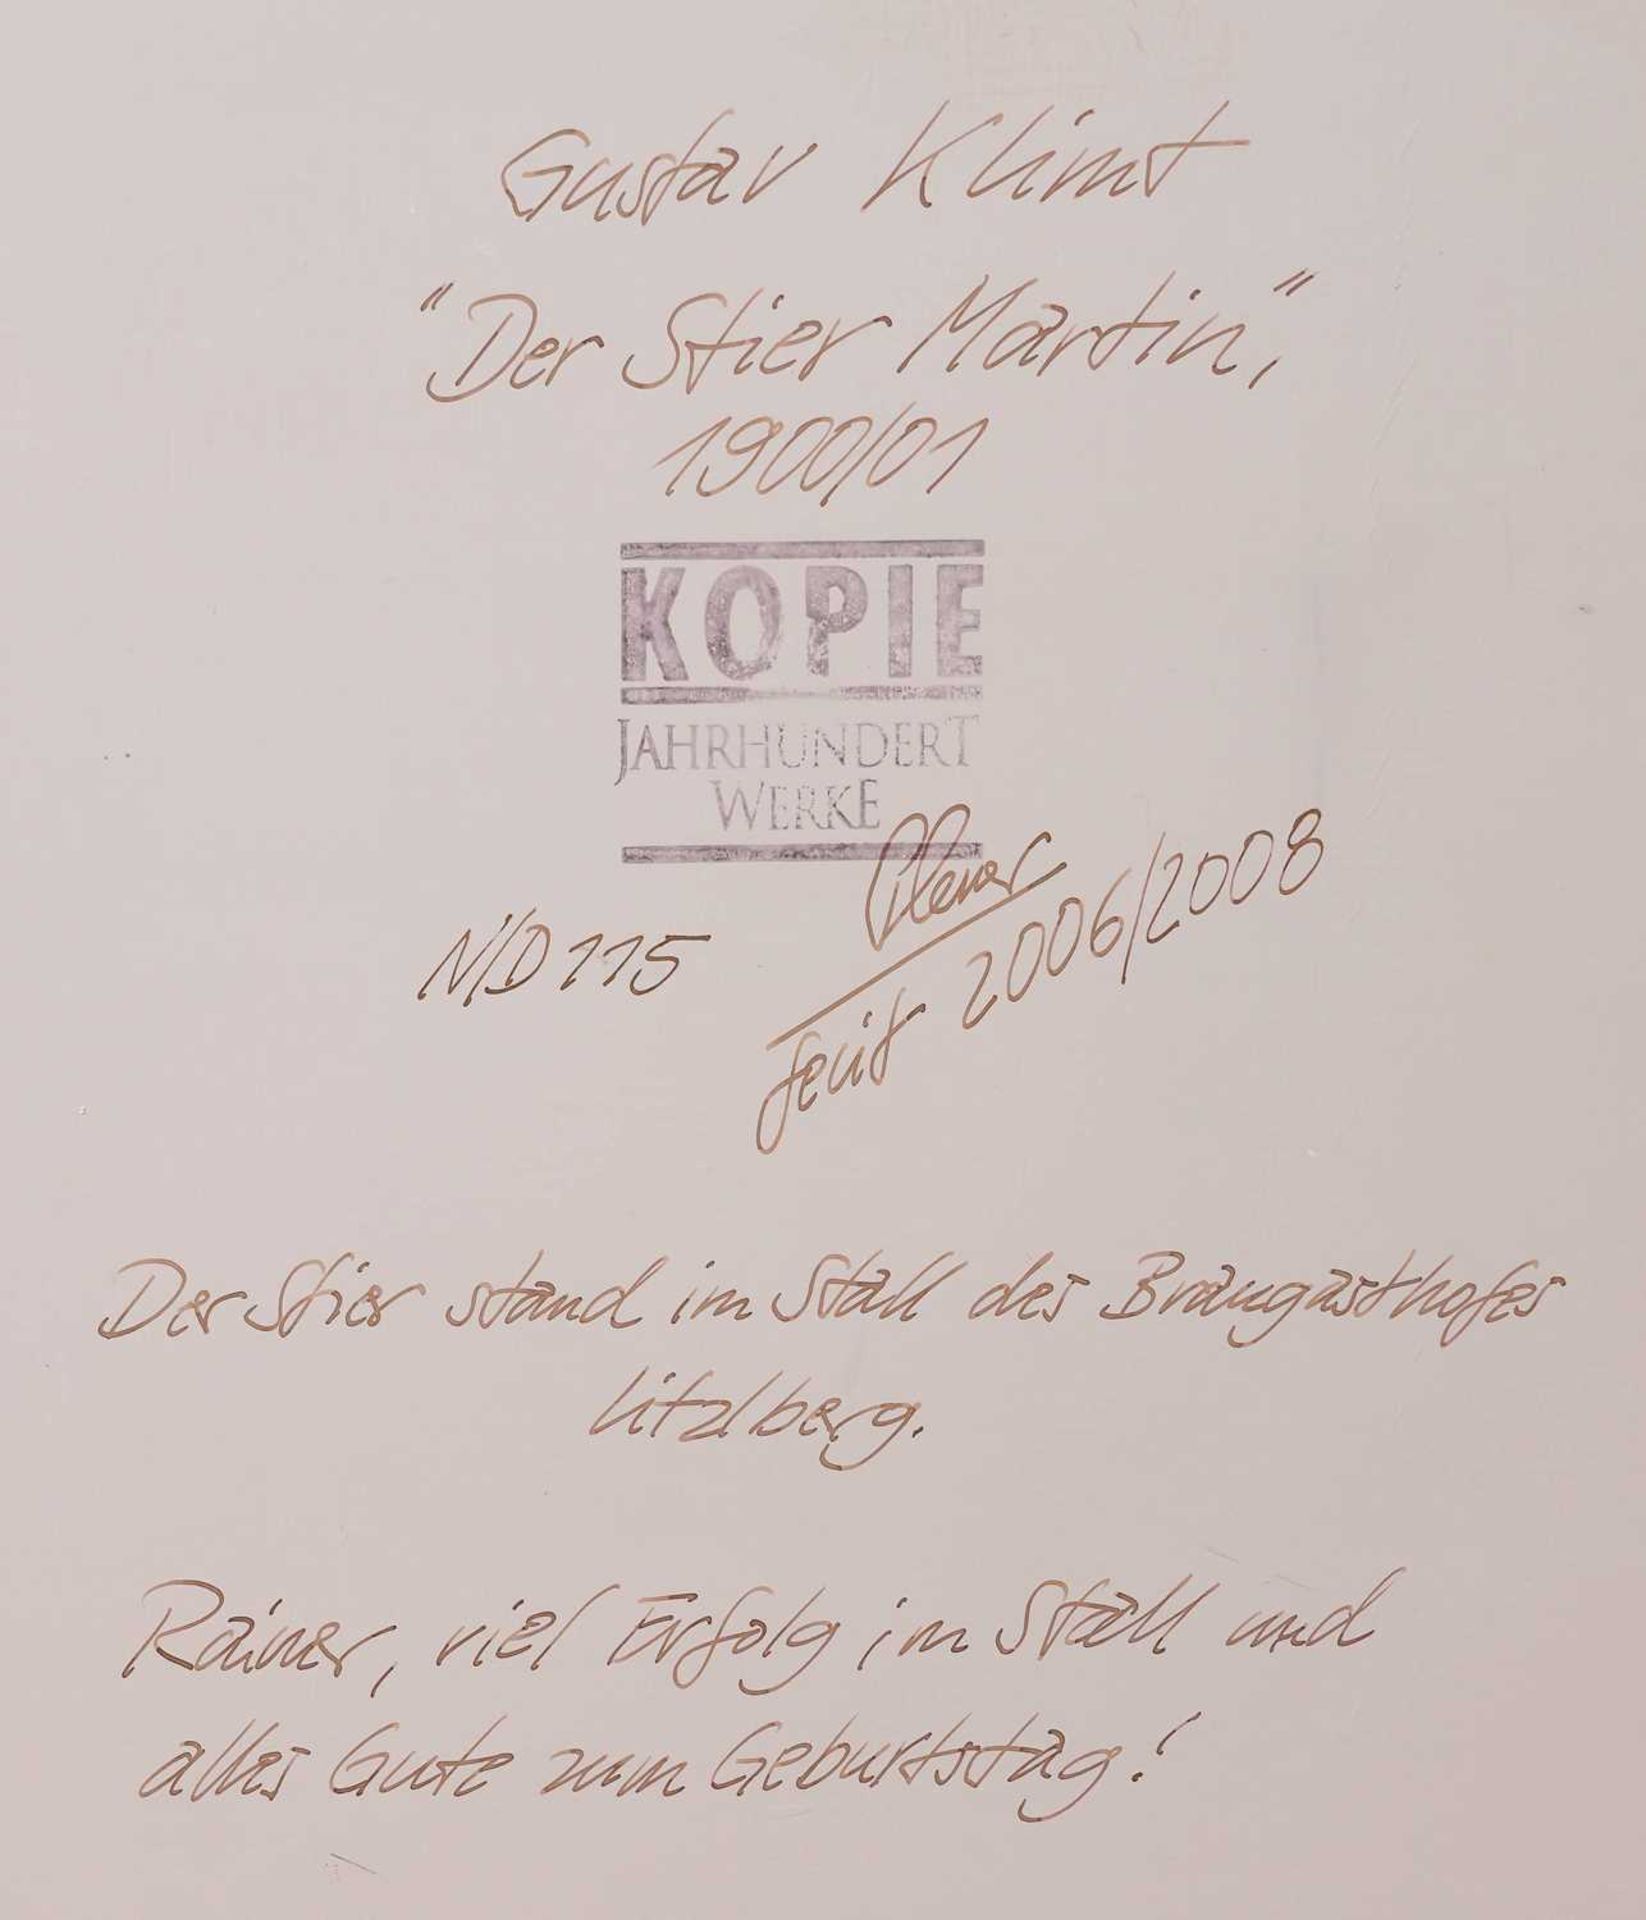 Gustav Klimt
"Der Stier Martin",
1900/01
KOPIE
JAHRHUNDERT
WERKE
N/D 115
fecit 2006/2008
Der Stier stand im Stall des Braugasthofes
Litzlberg.
Rainer, viel Erfolg im Stall und
alles Gute zum Geburtstag!